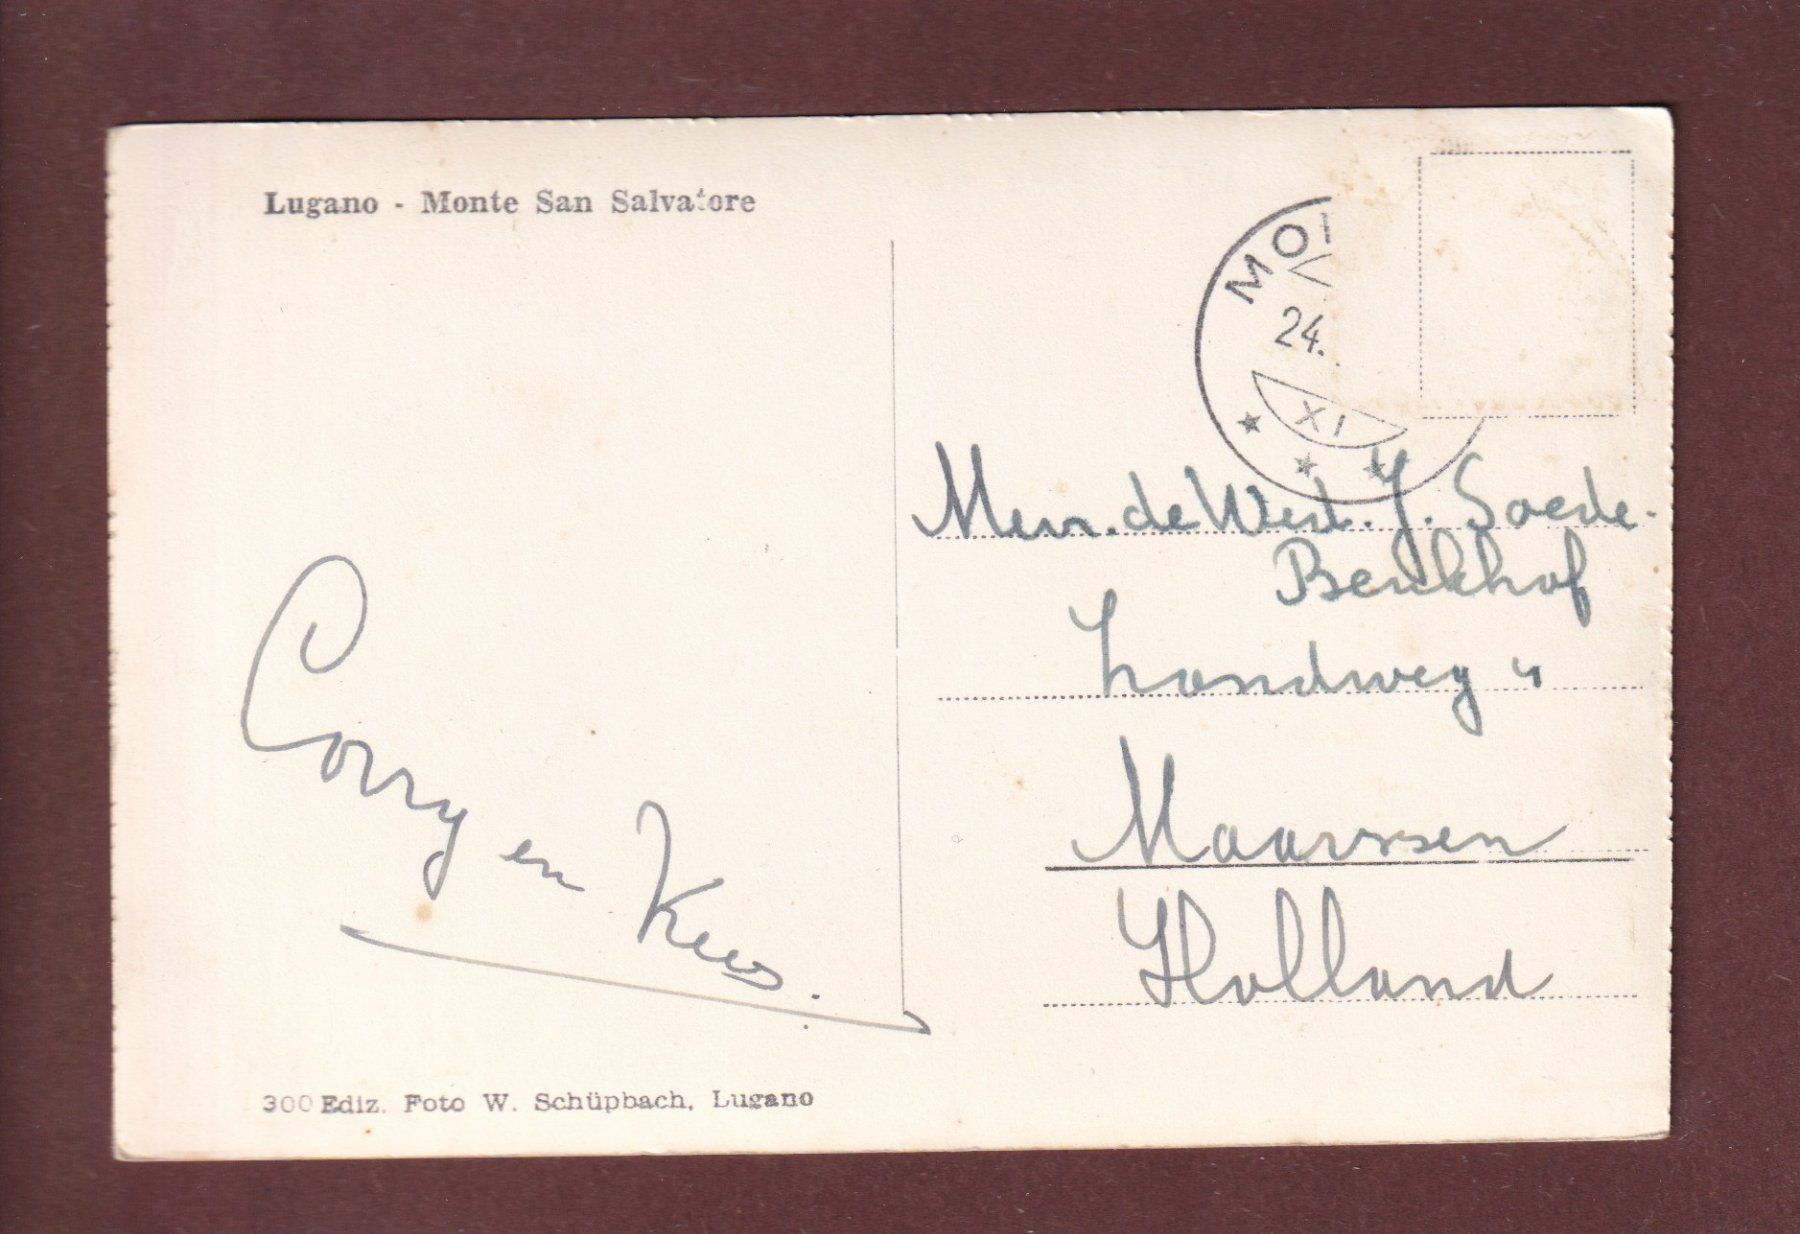 Lugano - Monte San Salvatore
24.
XI
Mevr. de Wed. J. Soede-
Berkhof
Landweg 4
Maarssen
Holland
Corry en Kees.
300 Ediz. Foto W. Schüpbach, Lugano